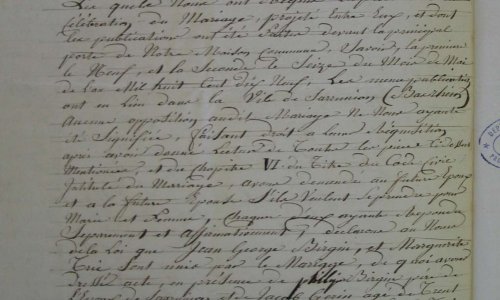 Les quels Nous ont
célébration du Mariage, projeté Entre Eux, et dont
les publications ont été faites devant la principal
porte de Notre Maison Commune. Savoir, la premiere
le Neuf, et la Seconde le Seize du Mois de Mai
de l'an Mil huit Cent dix Neuf, Les memes publications
ont eu Lieu dans la Ville de
Aucune opposition audit Mariage Ne Nous ayant
été Signifiée, faisant droit a Leur Requisition
après avoir donné Lecture de Toute les piece Ci dessus
Mentionnee, et du Chapitre VI du Titre du Code Civil
Intitulé du Mariage, avons demandé au future Epoux
et a la future Epouse S'ils Veulent se prendre pour
Marie et Femme, Chaqun d'eux ayant repondu
Separement et affirmativement, declarons au Nom
de la Loi que Jean George Birgin, et Marguerite
Sont unis par le Mariage, de quoi avons
dressé acte, en présence de philip Birgin pere de
l'Epoux de et de Jacob age de Trent